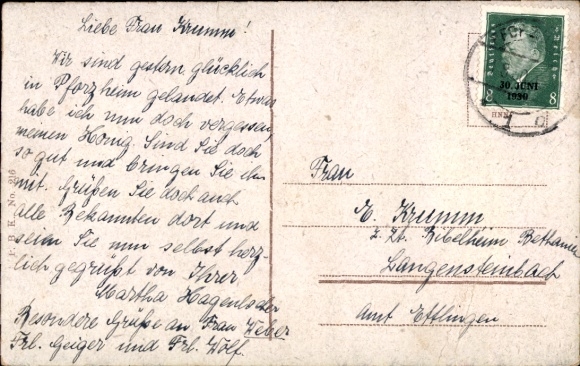 Liebe Frau Krumm!
Wir sind gestern glücklich
in Pforzheim gelandet. Etwas
habe ich nun doch vergessen,
meinen Honig. Sind Sie doch
so gut und bringen Sie ihn
mit. Grüßen Sie doch auch
alle Bekannten dort und
seien Sie nun selbst herz-
lich gegrüßt von Ihrer
Martha Hagenlocher
Besondere Grüße an Frau Weber
Frl. Geiger und Frl. Wolf.
No. 216
Deutsches Reich
30. JUNI
1930
8 8
Frau
E. Krumm
z. Zt. Bibelheim Bethanien
Langensteinbach
Amt Ettlingen